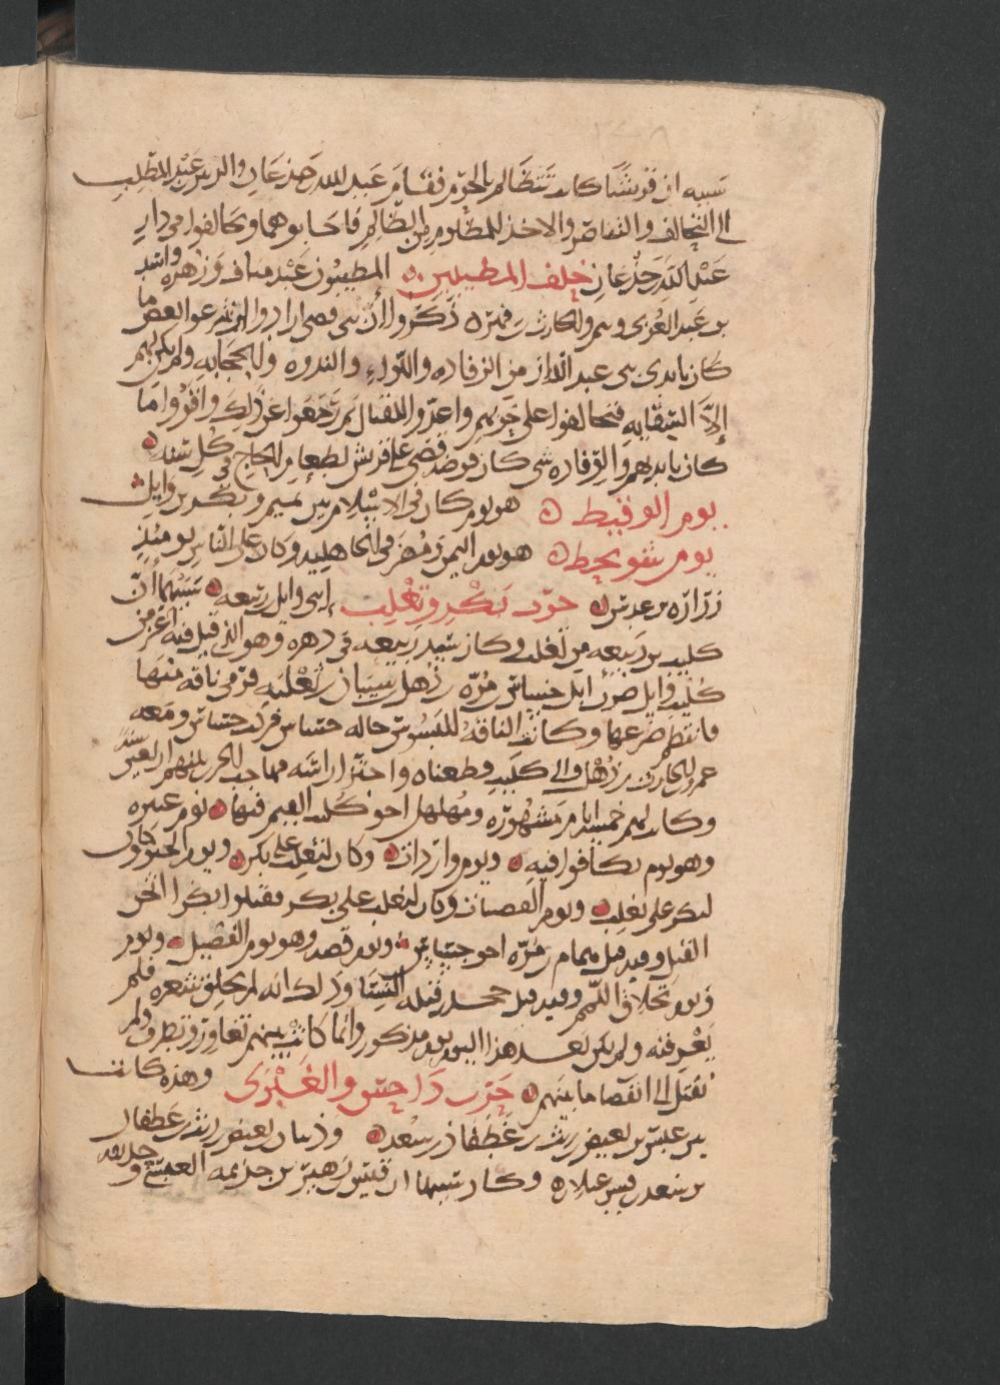 سببه ان قريشا كانت تتظالم بالحرم فقام عبد الله بن جذعان والزبير بن عبد المطلب
الى التحالف والتناصر والاخذ للمظلوم من الظالم فاجابوهما وتحالفوا في دار
عبد الله بن جذعان حلف المطيبين المطيبون عبد مناف وزهره واسد
بن عبد العزى وتيم والحارث بن فهر ذكروا ان بني قصي ارادوا ان ينتزعوا بعض ما
كان بايدي بني عبد الدار من الرفاده واللواء والندوه والحجابه ولم يكن لهم
إلا السقايه فتحالفوا على حربهم واعدوا للقتال ثم رجعوا عن ذلك واقروا ما
كان بايديهم والرفاده شي كان فرضه قصي على قريش لطعام الحاج في كل سنه
يوم الوقيط هو يوم كان في الاسلام بين تميم وبكر بن وايل
يوم هو يوم اليمن ومضر في الجاهليه وكان على الناس يومئذ
زراره بن عدس حرب بكر وتغلب ابني وايل بن ربيعه سببها أن
كليب بن ربيعه من تغلب وكان سيد ربيعه في دهره وهو الذي قيل فيه اعز من
كليب وايل ابل جساس بن مره بن ذهل بن شيبان بن ثعلبه فرمى ناقه منها
فانتظم ضرعها وكانت الناقه للبسوس خاله جساس فركب جساس ومعه
عمرو بن الحارث بن ذهل الى كليب فطعناه واحتزا راسه فهاجت الحرب بينهم اربعين سنه
وكانت لهم خمسه ايام مشهوره ومهلهل اخو كليب القيم فيها يوم عنيزه
وهو يوم تكافوا فيه ويوم واردات وكان لتغلب على بكر ويوم الحنو وكان
لبكر على تغلب ويوم القصيبات وكان لتغلب على بكر فقتلوا بكرا اثخن
القتل وفيه قتل همام بن مره اخو جساس ويوم قضه وهو يوم الفصيل ويوم
ويوم تحلاق اللمم وفيه قتل جحدر قتله النسا وذلك انه لم يحلق شعره فلم
يعرفنه ولم يكن بعد هذا اليوم يوم مذكور وانما كانت بينهم تغاور وتطرف ولم
تقتل الى انقضا ما بينهم حرب داحس والغبرى وهذه كانت
بين عبس بن بغيض بن ريث بن غطفان بن سعد وذبيان بن بغيض بن ريث بن غطفان
بن سعد بن قيس عيلان وكان سببها ان قيس بن زهير بن جذيمه العبسي و